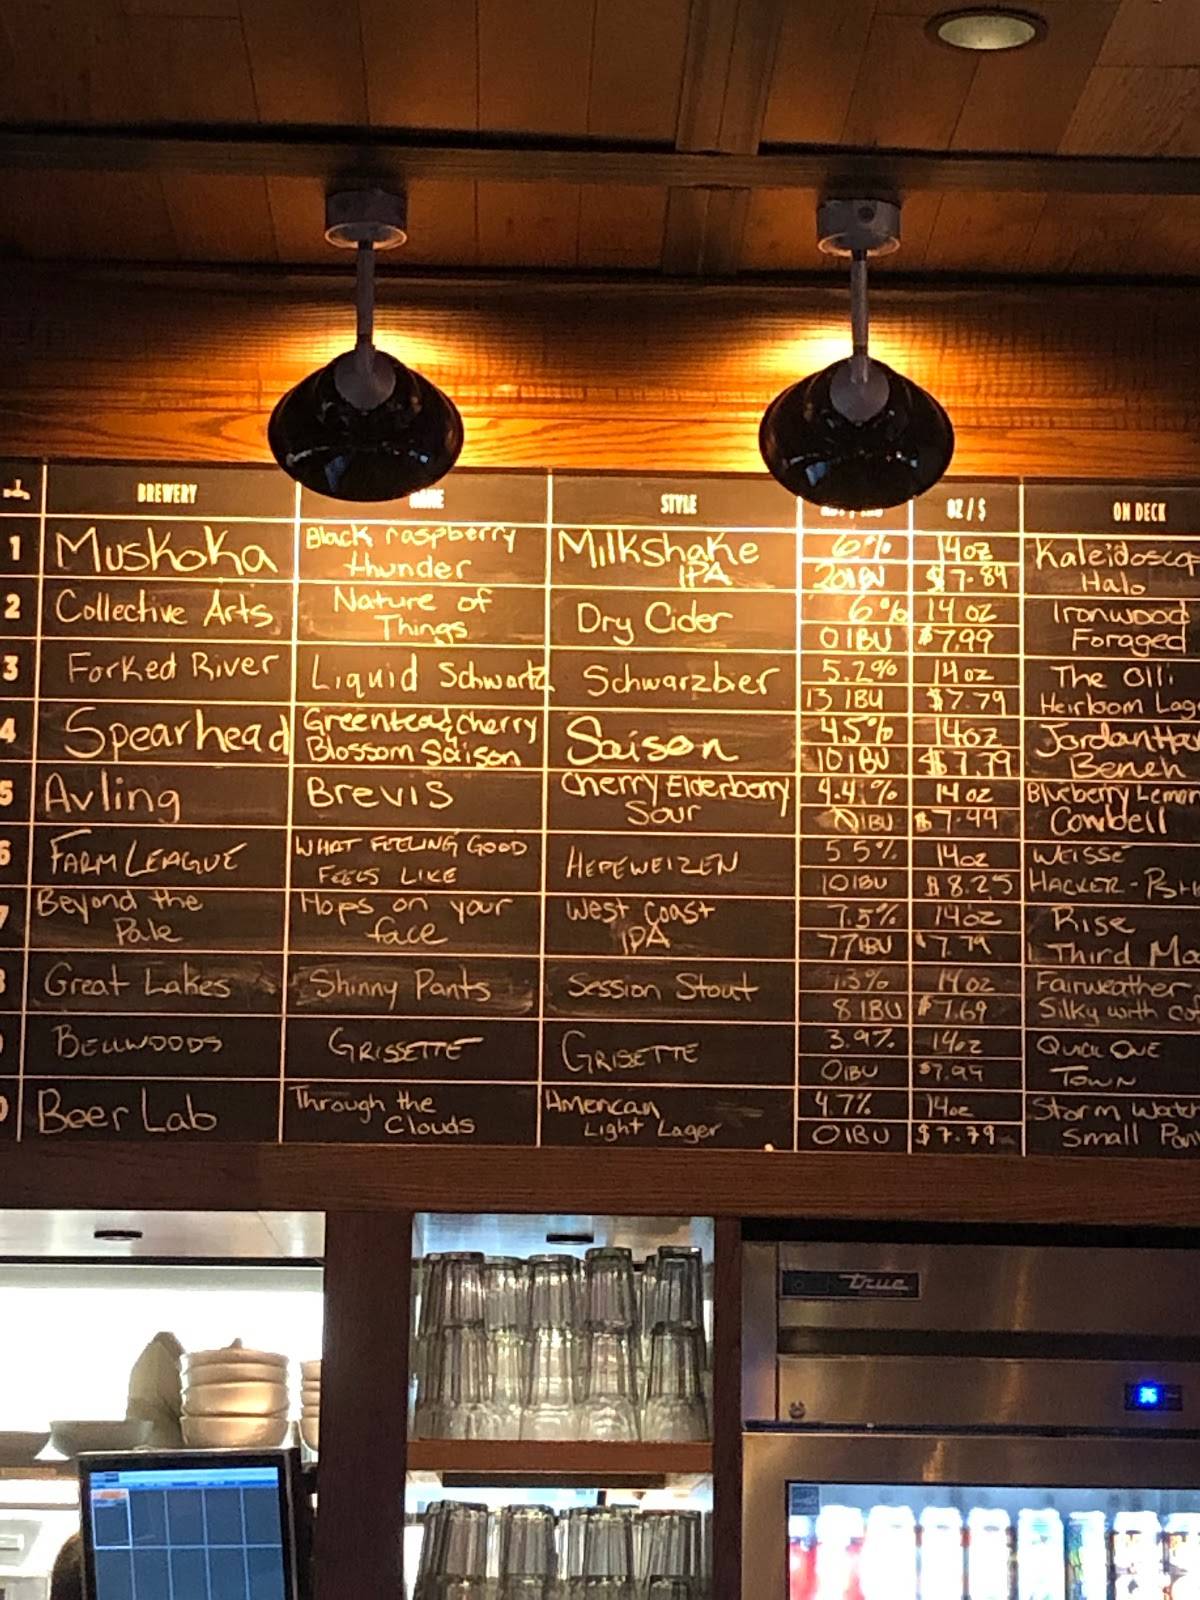 BREWERY STYLE OZ / $ ON DECK
1 Muskoka Black raspberry thunder Milkshake IPA 6% 20IBU 14oz $7.89 Halo
2 Collective Arts Nature of Things Dry Cider 6% 0IBU 14oz $7.99 Ironwood Foraged
3 Forked River Liquid Schwartz Schwarzbier 5.2% 13 IBU 14oz $7.79 The Olli Heirloom
4 Spearhead Greentea & Cherry Blossom Saison Saison 4.5% 10IBU 14oz $7.79 Bench
5 Avling Brevis Cherry Elderberry Sour 4.4% 14oz Blueberry Cowbell
FARM LEAGUE WHAT FEELING GOOD FEELS LIKE HEFEWEIZEN 5.5% 10IBU 14oz $8.25 WEISSE
Beyond the Pale Hops on your face West Coast IPA 7.5% 77IBU 14oz $7.79 Rise Third
Great Lakes Shinny Pants Session Stout 8 IBU 14oz $7.69 Fairweather Silky with
BELLWOODS GRISSETTE GRISETTE 3.9% 0IBU 14oz $7.99 QUICK ONE TOWN
Beer Lab Through the Clouds American Light Lager 4.7% 0IBU 14oz $7.79 Storm Small
true